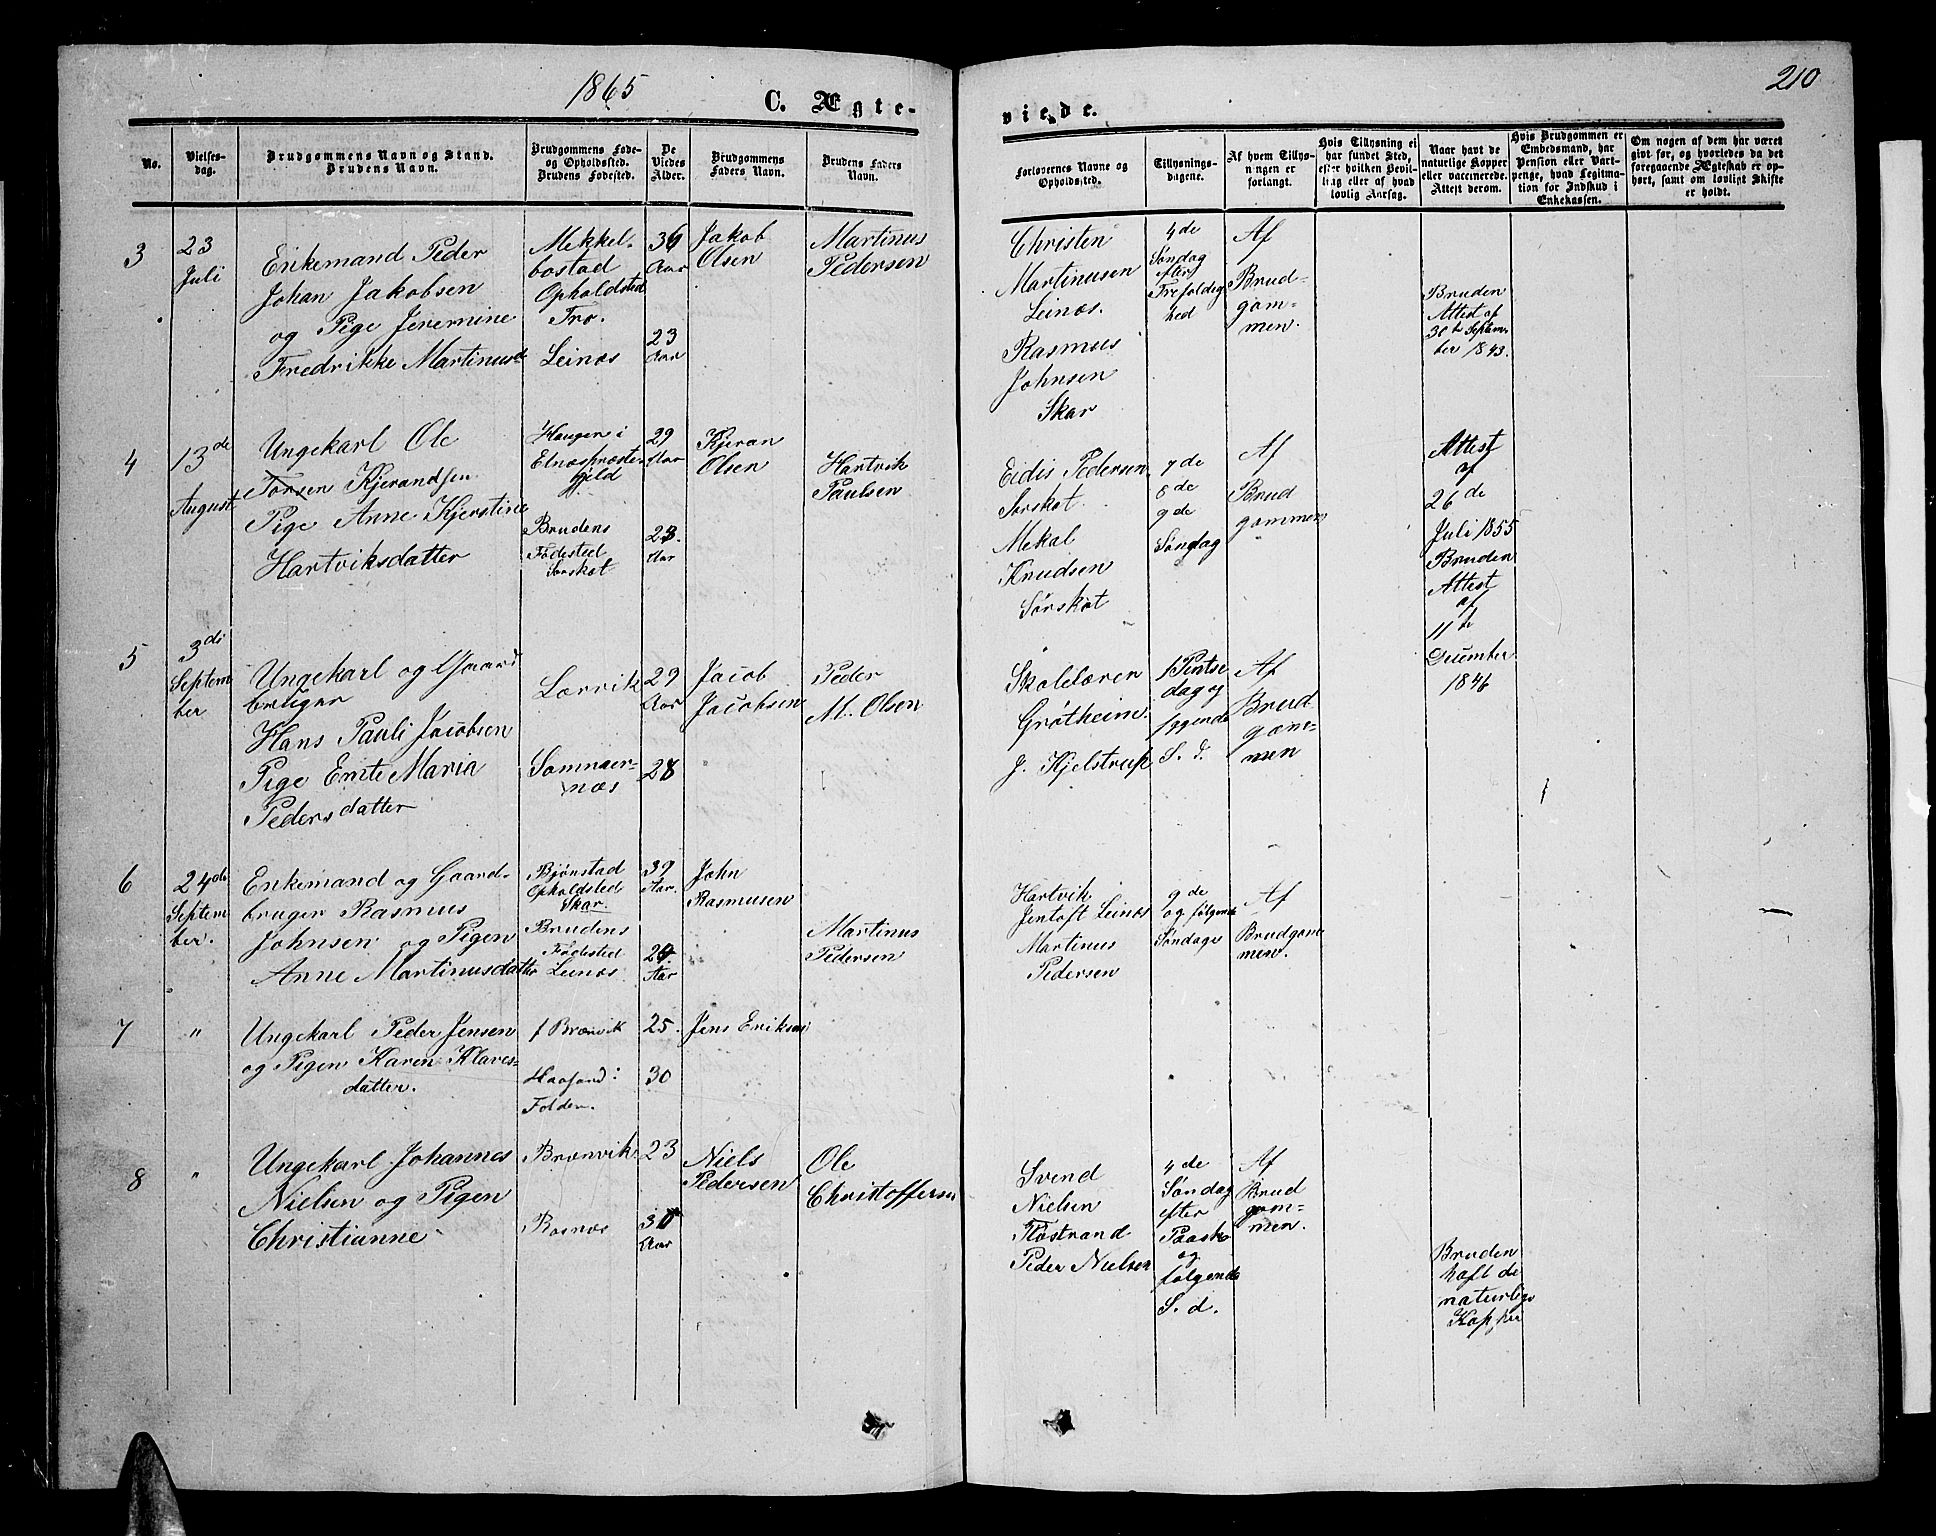 1865
C. Ægte-
viede.
210
No.
Vielses-
dag.
Brudgommens Navn og Stand.
Brudens Navn.
Brudgommens Føde-
og Opholdssted.
Brudens Fødested.
De
Viedes
Alder.
Brudgommens
Faders Navn.
Brudens Faders
Navn.
Forlovernes Navne og
Opholdssted.
Tillysnings-
dagene.
Af hvem Tillys-
ningen er
forlangt.
Hvis Tillysning ei
har fundet Sted,
efter hvilken Bevil-
ling eller af hvad
lovlig Aarsag.
Naar havt de
naturlige Kopper
eller vaccinerede.
Attest derom.
Hvis Brudgommen er
Embedsmand, har
Pension eller Vart-
penge, hvad Legitima-
tion for Indskud i
Enkekassen.
Om nogen af dem har været
gift før, og hvorledes da det
foregaaende Ægteskab er op-
hørt, samt om lovligt Skifte
er holdt.
3
23
Juli
Enkemand Peder
Johan Jakobsen
og Pige Jeremine
Fredrikke Martinusd
Mekkel-
bostad
Opholdsted
Trø.
Leinæs
36
Aar
23
Aar
Jakob
Olsen
Martinus
Pedersen
Christen
Martinusen
Leinæs.
Rasmus
Johnsen
Skar
4de
Søndag
efter
Trefoldig
hed
Af
Brud-
gom-
men.
Bruden
Attest af
30te Septem-
ber 1843.
4
13de
August
Ungekarl Ole
Torsen Kjerandsen
Pige Anne Kjerstine
Hartviksdatter
Haugen i
Præste-
gjeld
Brudens
Fødested
Sørskot
29
Aar
23.
Aar
Kjeran
Olsen
Hartvik
Paulsen
Eidis Pedersen
Sørskot
Mekal
Knudsen
Sørskot
7de
8de
9de
Søndag
Af
Brud
gommen
Attest
af
26de
Juli 1855
Bruden
Attest
af
11te
December
1846
5
3di
Septem
ber
Ungekarl og Gaard
bruger
Hans Pauli Jacobsen
Pige Ente Maria
Pedersdatter
Lørvik
Somnær-
næs
29
Aar
28
Jacob
Jacobsen
Peder
M. Olsen
Skolelærer
Grøtheim.
J. Kjelstrup
1 Pintse
dag og
fgende
S. d.
Af
Brud
gom-
men
6
24de
Septem
ber.
Enkemand og Gaard-
bruger Rasmus
Johnsen og Pigen
Anne Martinusdatter
Bjønstad
Opholdsted
Skar.
Brudens
Fødested
Leinæs
39
Aar.
Aar
John
Rasmusen
Martinus
Pedersen
Hartvik
Jentoft Leinæs
Martinus
Pedersen
9de
og følgende
Søndage
Af
Brudgom
men.
7
"
Ungekarl Peder Jensen
og Pigen Karen Klaves-
datter.
f Brænvik
Haafand i
Folden.
25.
30
Jens Eriksen
8
"
Ungekarl Johannes
Nielsen og Pigen
Christianne
Brænvik
Røsnæs
23
Aar
Niels
Pedersen
Ole
Christoffersen
Svend
Nielsen
Flostrand
Peder Nielsen
4de
Søndag
efter
Paaske
og
følgende
S. d.
Af
Brud
gom-
men.
Bruden
haft de
naturlige
Kopper